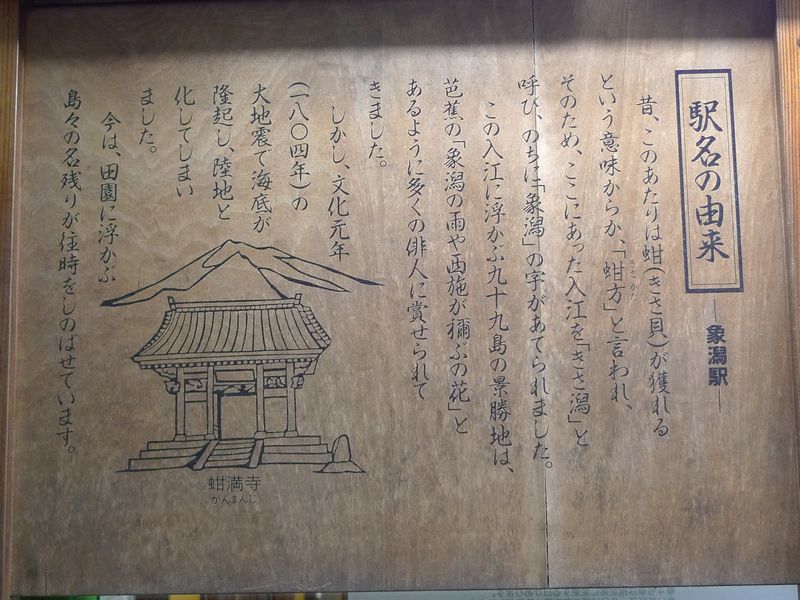 駅名の由来
―象潟駅―
昔、このあたりは蚶(きさ貝)が獲れる
という意味からか、「蚶方」と言われ、
きさかた
そのため、ここにあった入江を「きさ潟」と
呼び、のちに「象潟」の字があてられました。
この入江に浮かぶ九十九島の景勝地は、
芭蕉の「象潟の雨や西施が禰ぶの花」と
あるように多くの俳人に賞せられて
きました。
しかし、文化元年
(一八〇四年)の
大地震で海底が
隆起し、陸地と
化してしまい
ました。
今は、田園に浮かぶ
島々の名残りが往時をしのばせています。
蚶満寺
かんまんじ